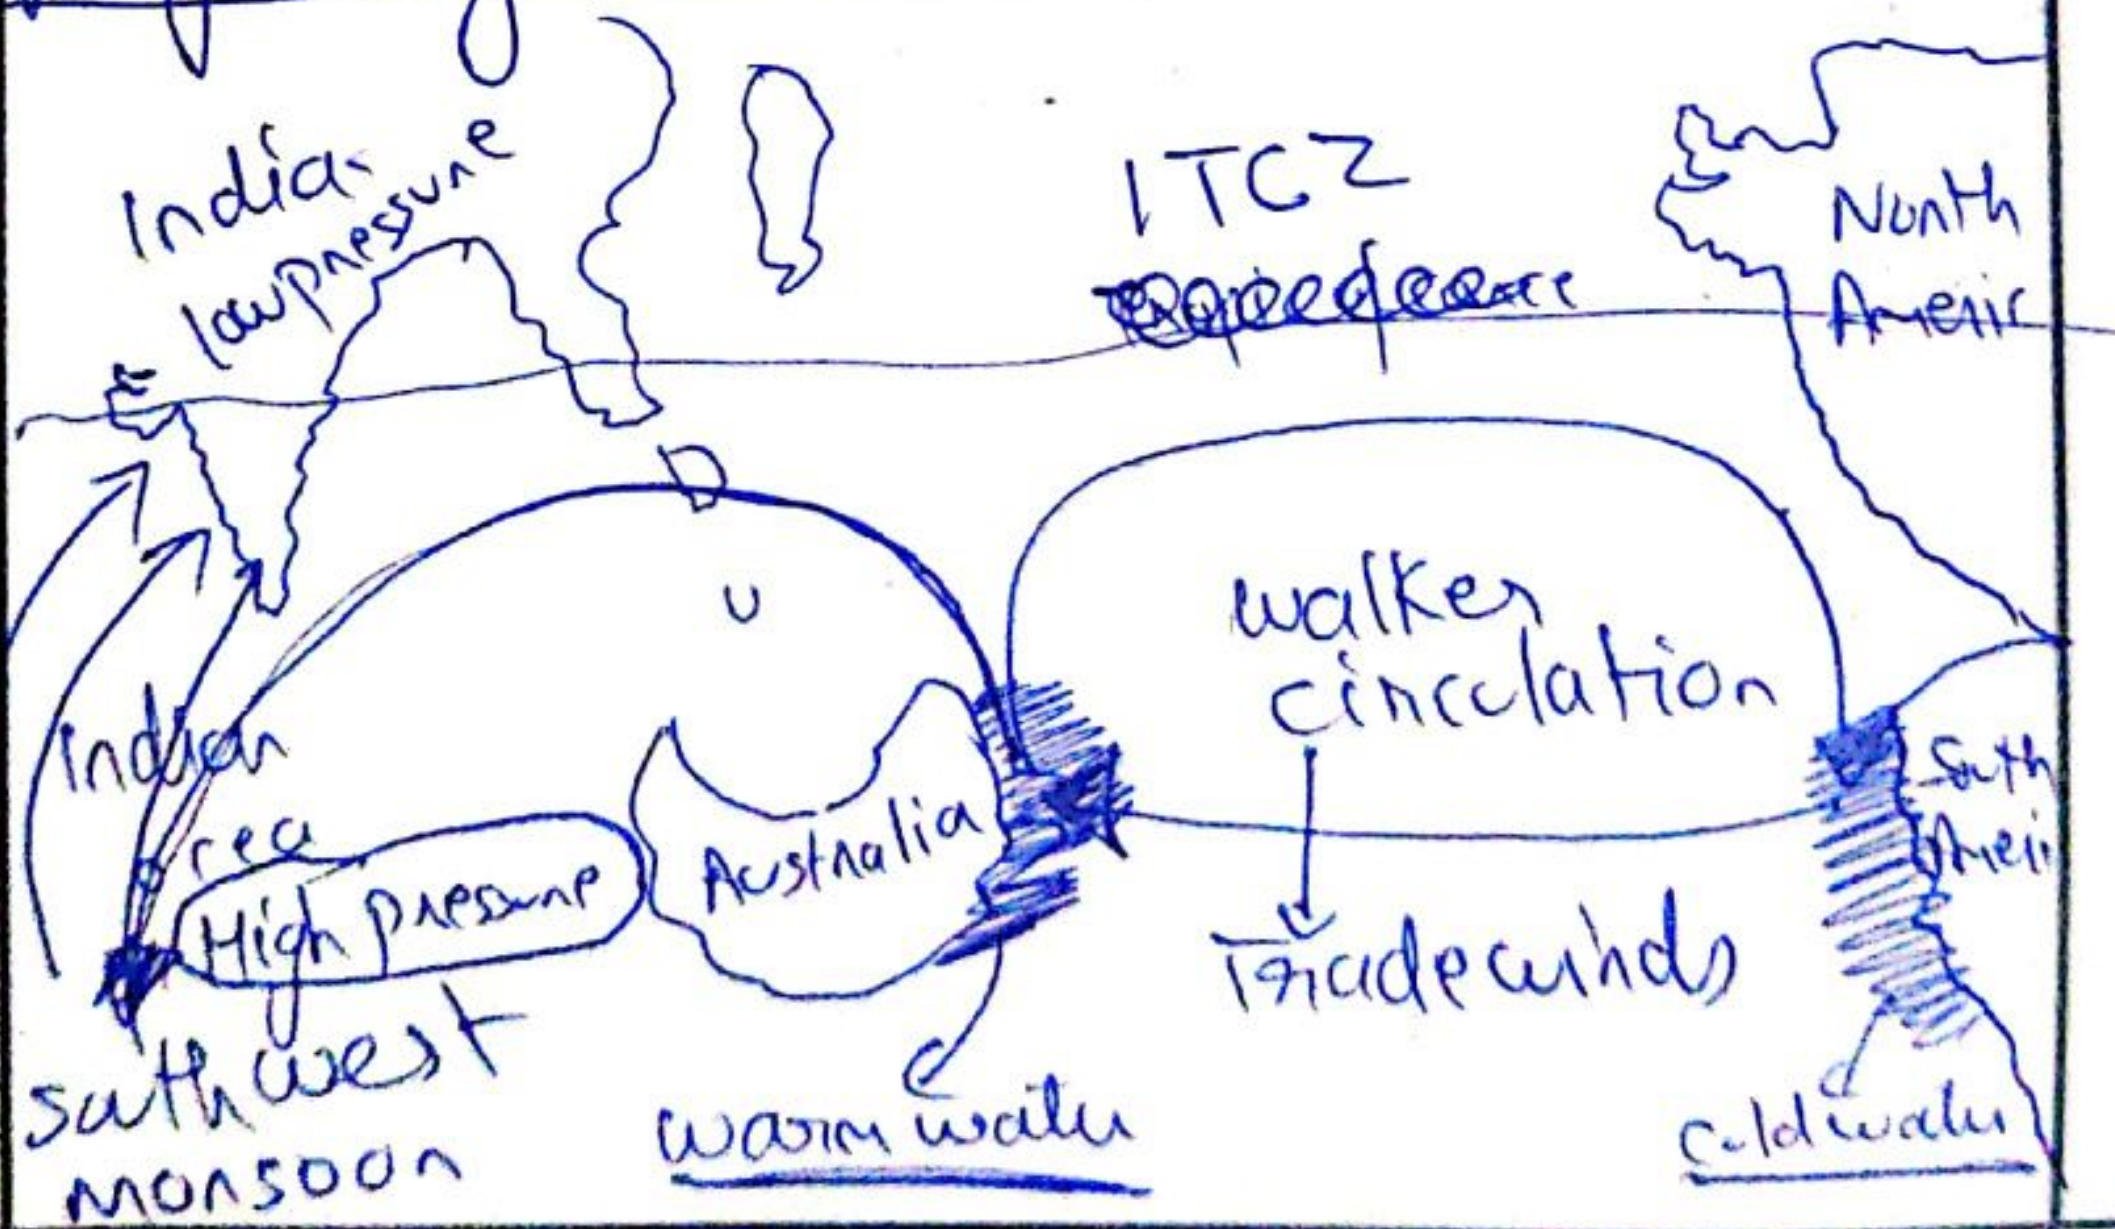 India-
lowpressure
ITCZ
North
Americ
walker
circulation
Indian
High pressure
Australia
South
Ameri
Tradewinds
south west
monsoon
warm water
coldwater